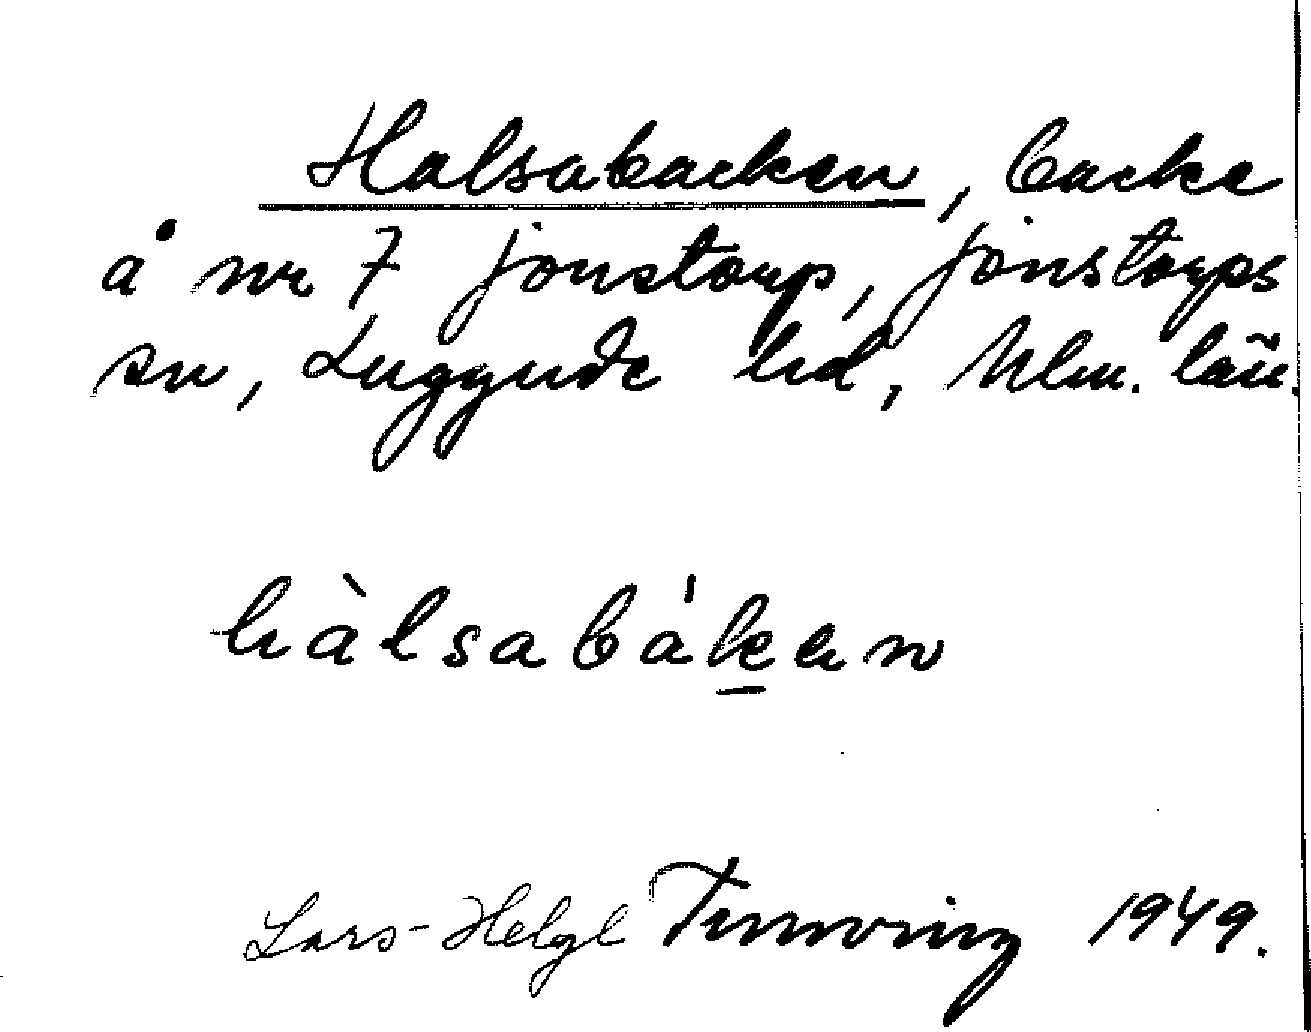 Halsabacken, backe
å nr 7 Jonstorp, Jonstorps
sn, Luggude hd, Mlm. län.
hàlsabákan
Lars-Helge Tunving 1949.